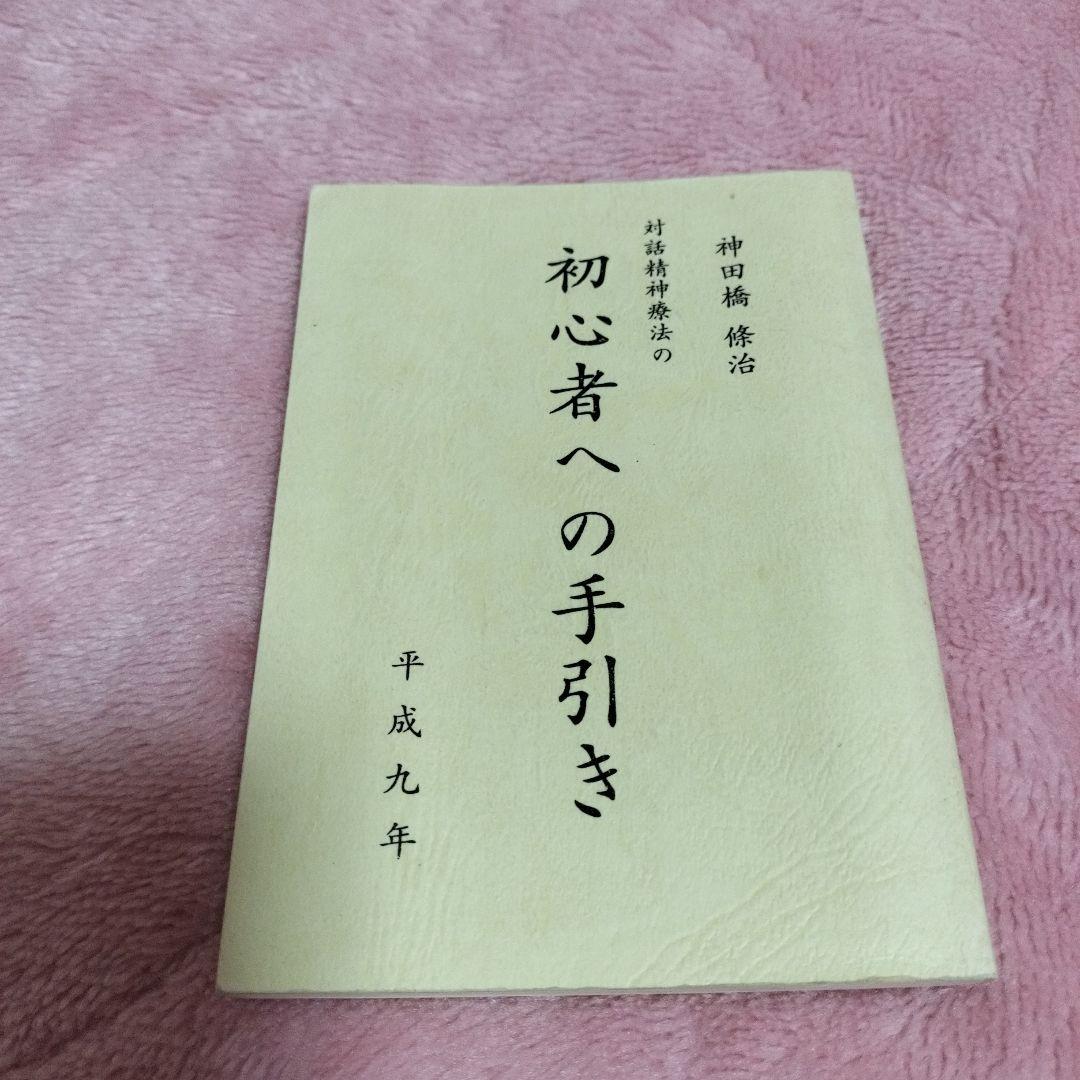 神田橋 條治
対話精神療法の
初心者への手引き
平成九年